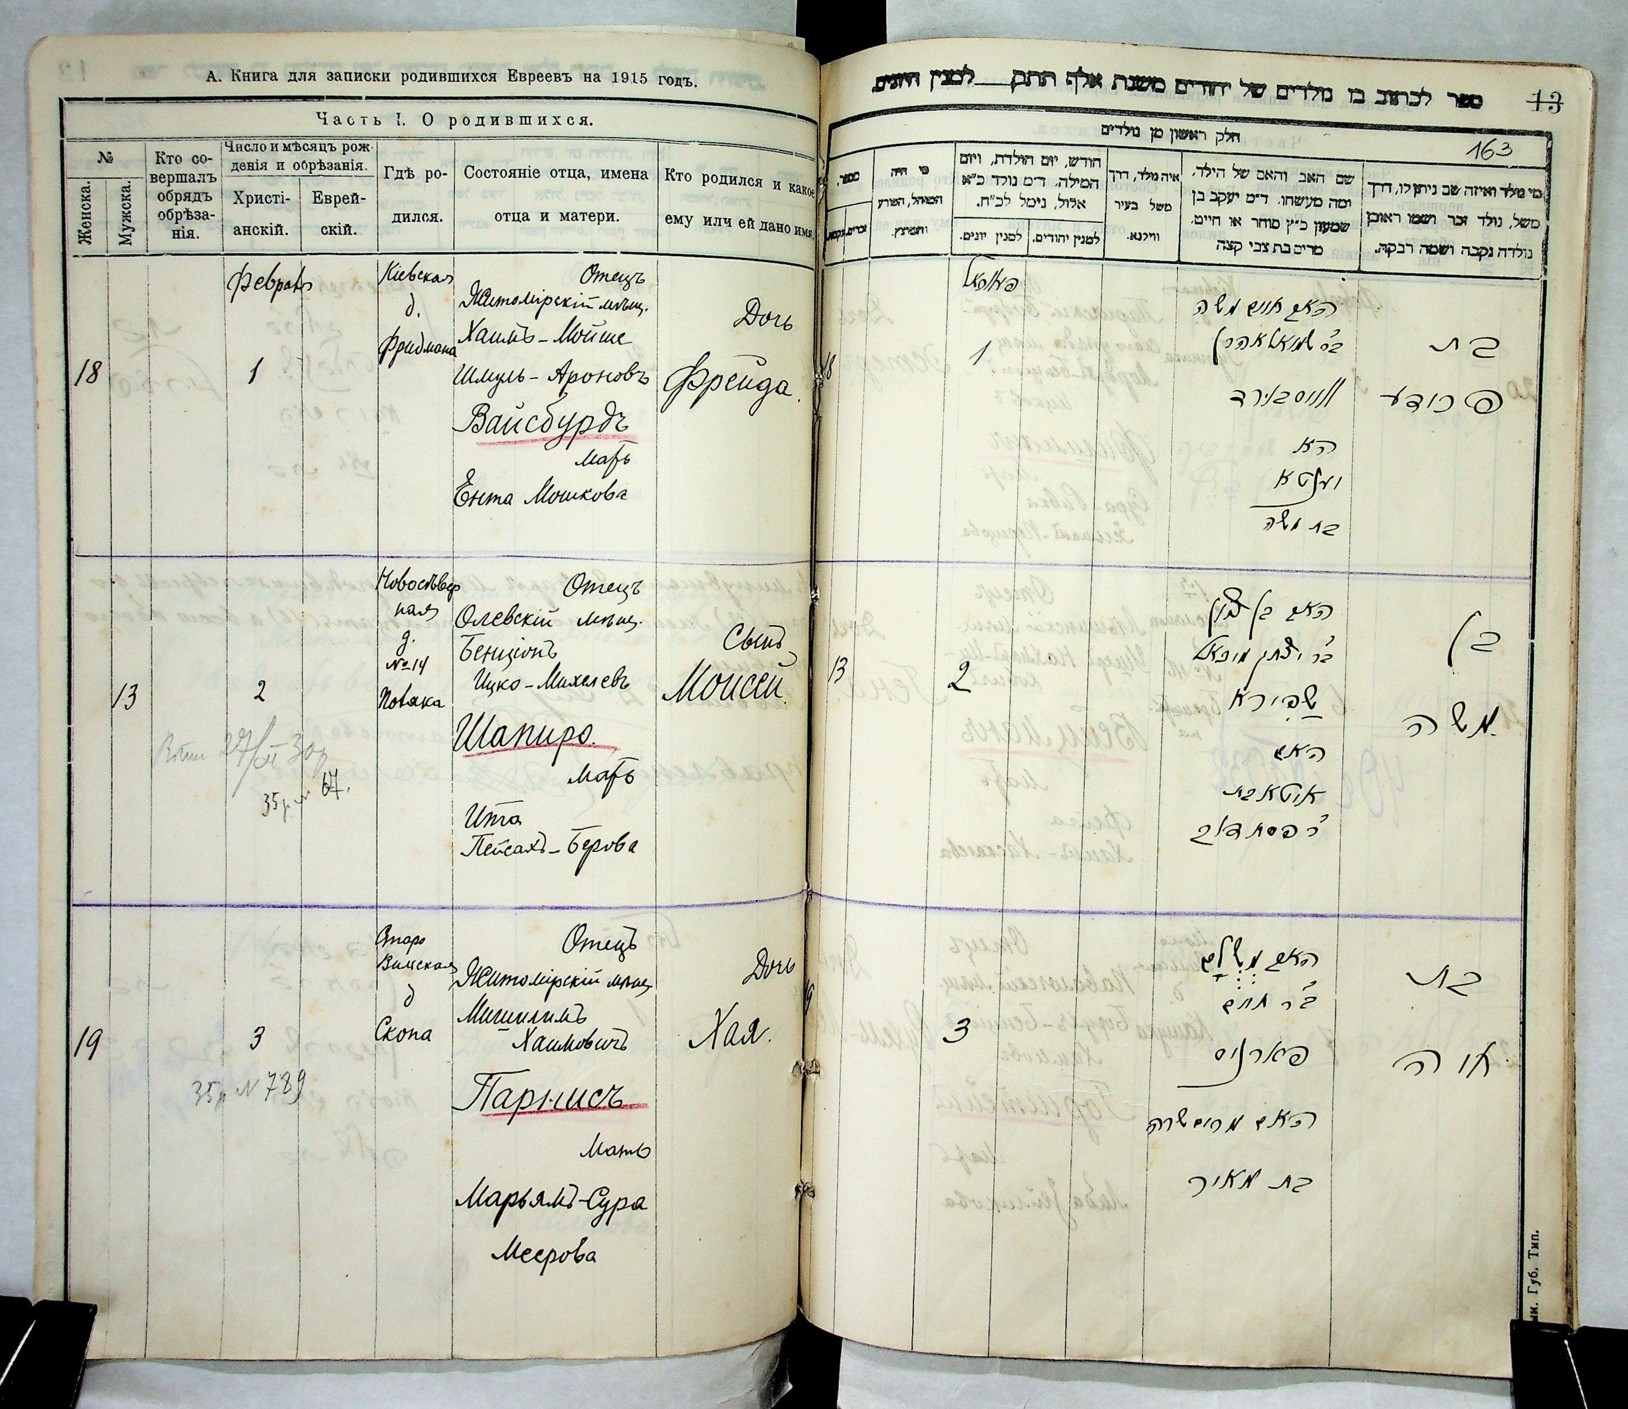 А. Книга для записки родившихся Евреевъ на 1915 годъ.
Часть I. О родившихся.
№
Женска.
Мужска.
Кто со-
вершалъ
обрядъ
обрѣза-
нія.
Число и мѣсяцъ рож-
денія и обрѣзанія.
Христі-
анскій.
Еврей-
скій.
Гдѣ ро-
дился.
Состояніе отца, имена
отца и матери.
Кто родился и какое
ему или ей дано имя.
18
Февраль
1
Кіевская
д.
Фридмана
Отецъ
Житомірскій мѣщ.
Хаимъ-Мойше
Шмуль-Ароновъ
Вайсбурдъ
Мать
Ента Мошкова
Дочь
Фрейда.
13
2
Новосѣвер
ная
д.
№ 14
Новака
Отецъ
Олевскій мѣщ.
Бенціонъ
Ицко-Михелевъ
Шапиро.
Мать
Ита
Пейсахъ-Берова
Сынъ
Моисей.
35 г. № 67.
19
3
35 г. № 789
Старо
Вильская
д
Скопа
Отецъ
Житомірскій мѣщ.
Мишилимъ
Хаимовичъ
Парнисъ
Мать
Марьямъ-Сура
Меерова
Дочь
Хая.
ספר לכתוב בו נולדים של יהודים משנת אלף תתק לסנין היונים.
13
חלק ראשון מן נולדים
163
מספר,
זכרים.
נקבות.
מי היה
המוהל, הפורע
והמוצץ.
חודש, יום הולדת, ויום
המילה. ד״מ נולד כ״א
אלול, נימל לכ״ח.
למנין יונים.
למנין יהודים.
איה נולד, דרך
משל בעיר
ווילנא.
שם האב והאם של הילד,
ומה מעשהו. ד״מ יעקב בן
שמעון כ״ץ סוחר או חיים.
מרים בת צבי קצה
מי נולד ואיזה שם ניתן לו, דרך
משל, נולד זכר ושמו ראובן
נולדה נקבה ושמה רבקה.
18
1
האב חיים משה
ב״ר שמואל אהרן
ווייסבורד
הא
יענטא
בת משה
בת
פריידע
13
2
האב בן ציון
ב״ר יצחק מיכאל
שפירא
האם
איטא בת
ר׳ פסח דוב
בן
משה.
19
3
האב משלם
ב״ר חיים
פארניס
האם מרים שרה
בת מאיר
בת
חיה
Губ. Тип.